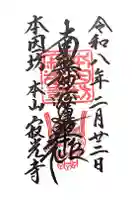 令和八年二月廿二日
南無妙法蓮華経
本因坊 本山寂光寺